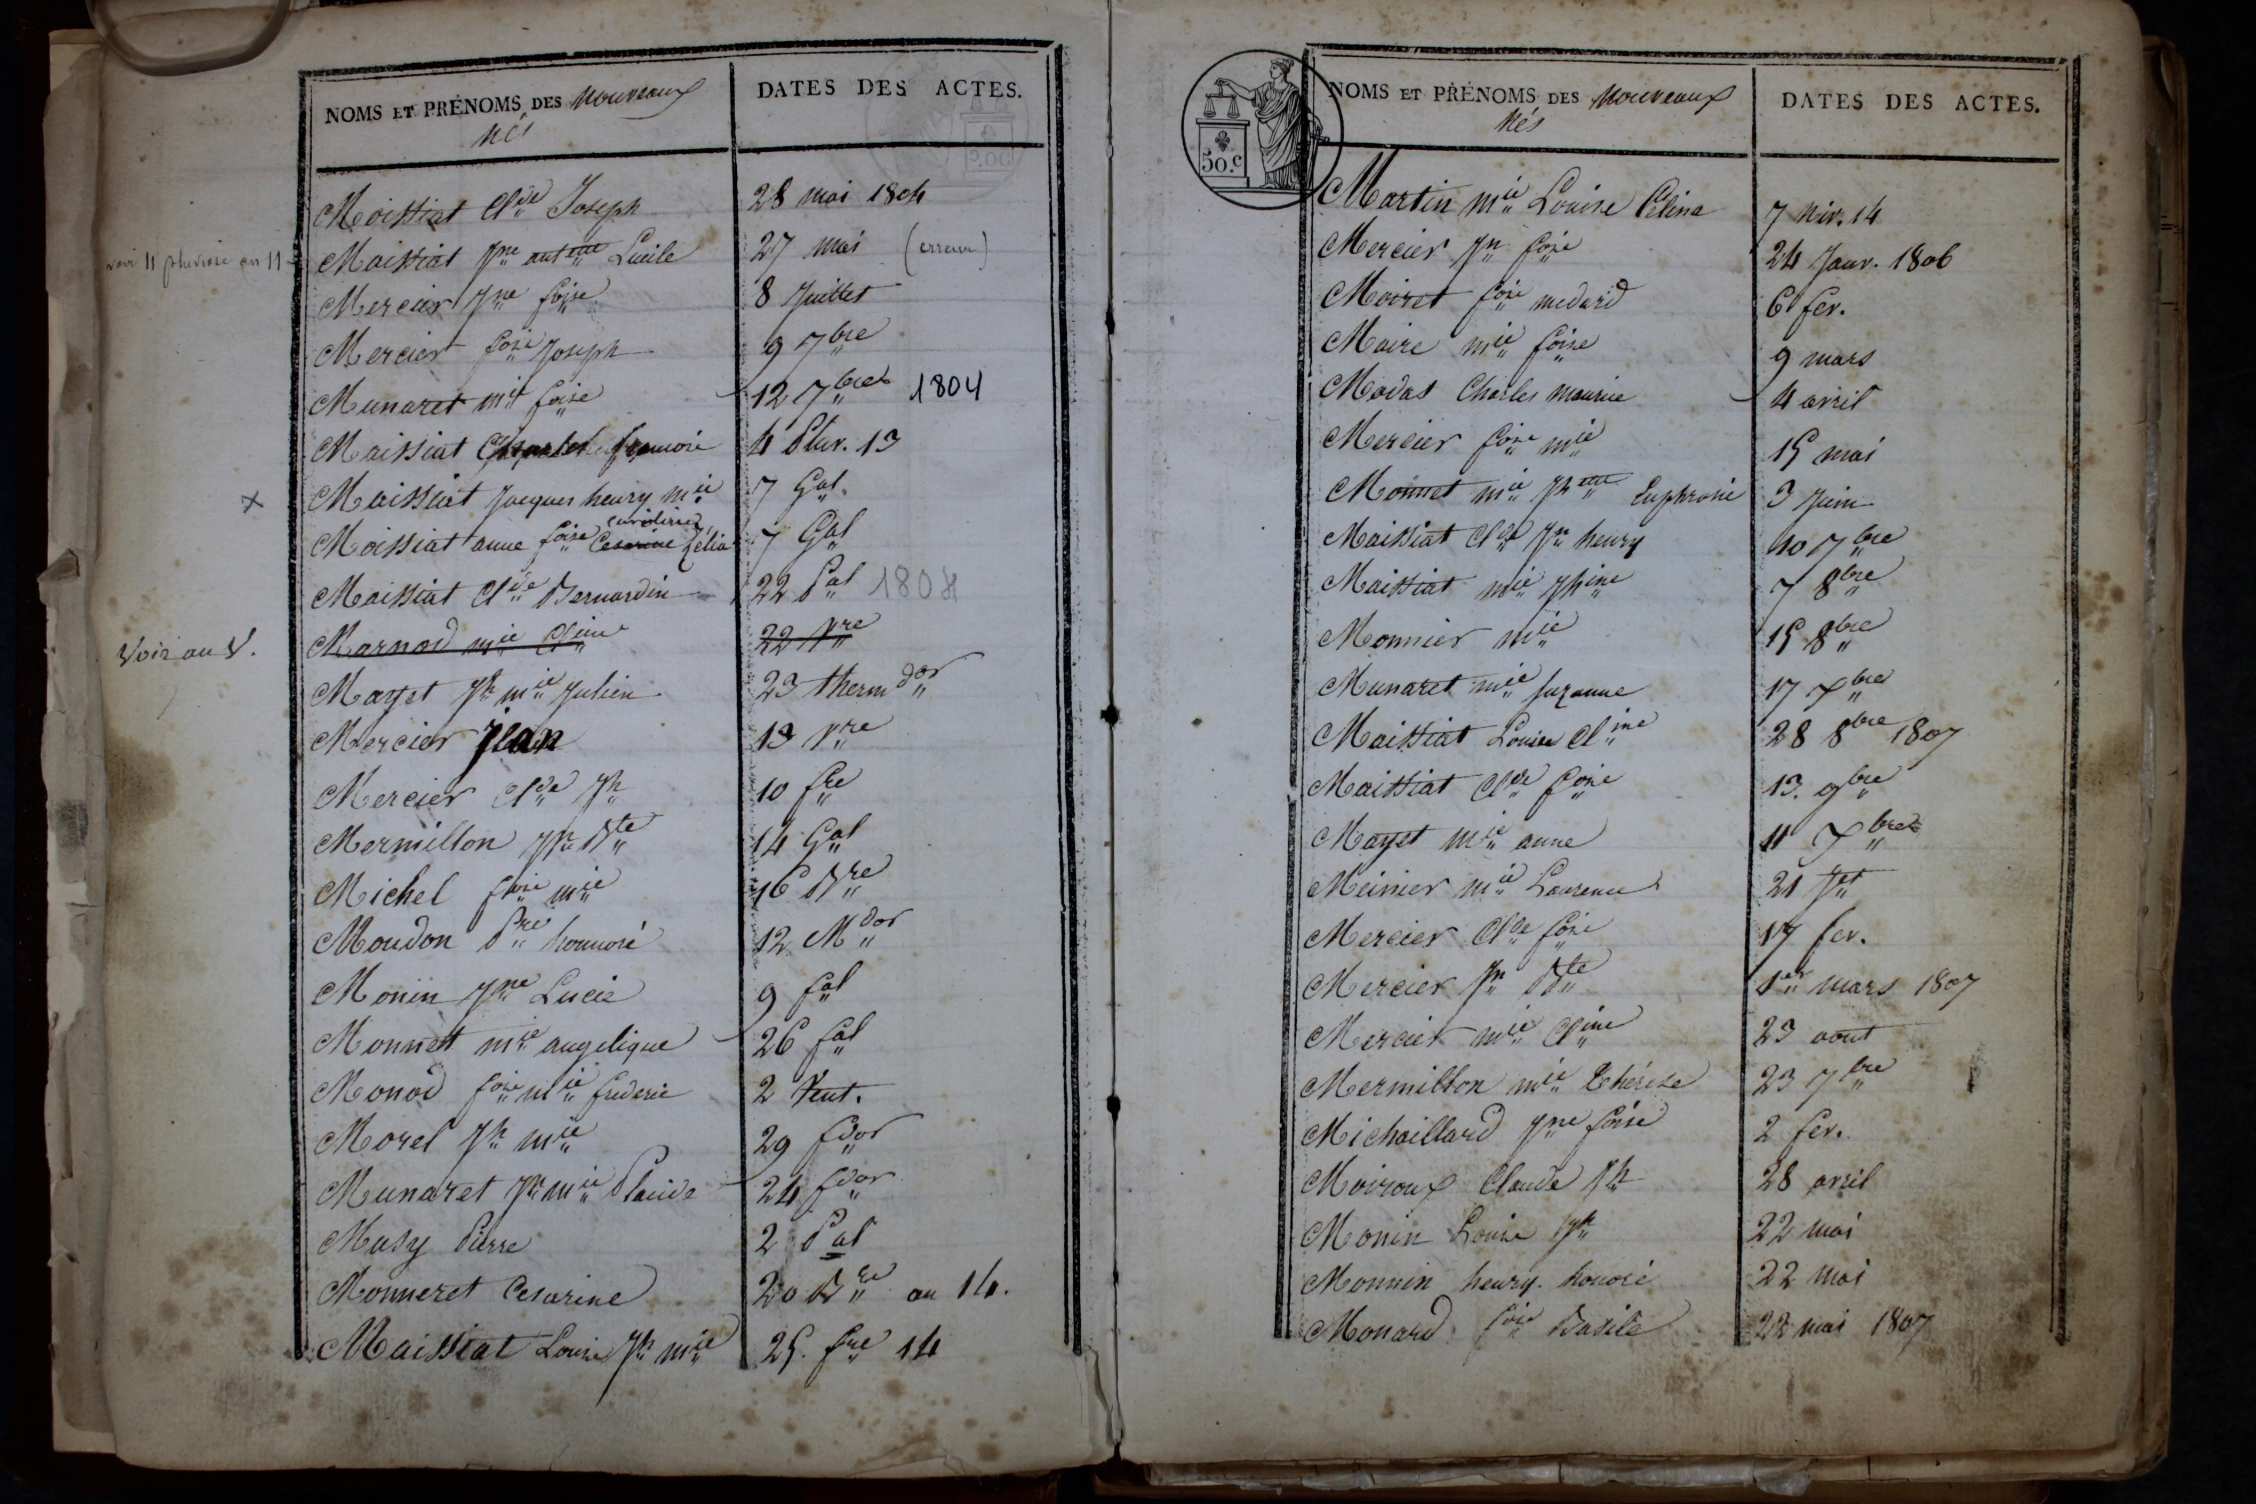 NOMS ET PRÉNOMS DES Nouveaux
Nés
DATES DES ACTES.
Moissiat Cl.de Joseph 28 mai 1804
voir 11 pluviose an 11
Maissiat Jne ant.tte Lucile 27 mai (erreur)
Mercier Jne foise 8 Juillet
Mercier fois Joseph 9 7bre
Munaret mie foise 12 7bre 1804
Maissiat 4 Pluv. 13
x
Maissiat Jacques henry mie 7 Gal.
Moissiat anne foise Cesarine Zélia 7 Gal
Maissiat Clde Bernardin 22 Pal 1804
Voir au V.
Marnod mie Cl.ine 22 Vre
Mayet Jh mie Julien 23 thermdor
Mercier Jean 13 Vre
Mercier Clde Jh 10 fre
Mermillon Jn Bte 14 Gal
Michel fois mie 16 Bre
Moudon Pre honnoré 12 Mdor
Monin Jne Lucie 9 fal
Monnett mie angelique 26 fal
Monod fois mie frederic 2 Vent.
Morel Jh mie 29 fdor
Munaret Jn mie Placide 24 fdor
Masy Pierre 2 Pal
Monneret Cesarine 20 Bre an 14.
Maissiat Louis Jh mie 25. fre 14
NOMS ET PRÉNOMS DES Nouveaux
Nés
DATES DES ACTES.
50.c
Martin mie Louise Célina 7 Niv. 14
Mercier Jn fois 24 Janv. 1806
Moiret fois medard 6 fev.
Maire mie foise 9 mars
Modas Charles maurice 4 avril
Mercier fois mie 15 mai
Monnet mie Jhtte Euphrosie 3 Juin
Maissiat Clde Jn henry 10 7bre
Maissiat mie Jhine 7 8bre
Monnier mie 15 8bre
Munaret mie suzanne 17 Xbre
Maissiat Louise Cl.ine 28 8bre 1807
Maissiat Clde fois 13. 9bre
Mayet mie anne 11 Xbre
Meinier mie Laurence 21 Jet
Mercier Clde fois 17 fev.
Mercier Jn Bte 1er mars 1807
Mercier mie Cl.ine 23 aout
Mermillon mie Thérèse 23 7bre
Michaillard Jne foise 2 fev.
Moiroux Claude Jh 28 avril
Monin Louise Jh 22 mai
Monnin henry honoré 22 mai
Monard fois Basile 22 mai 1807